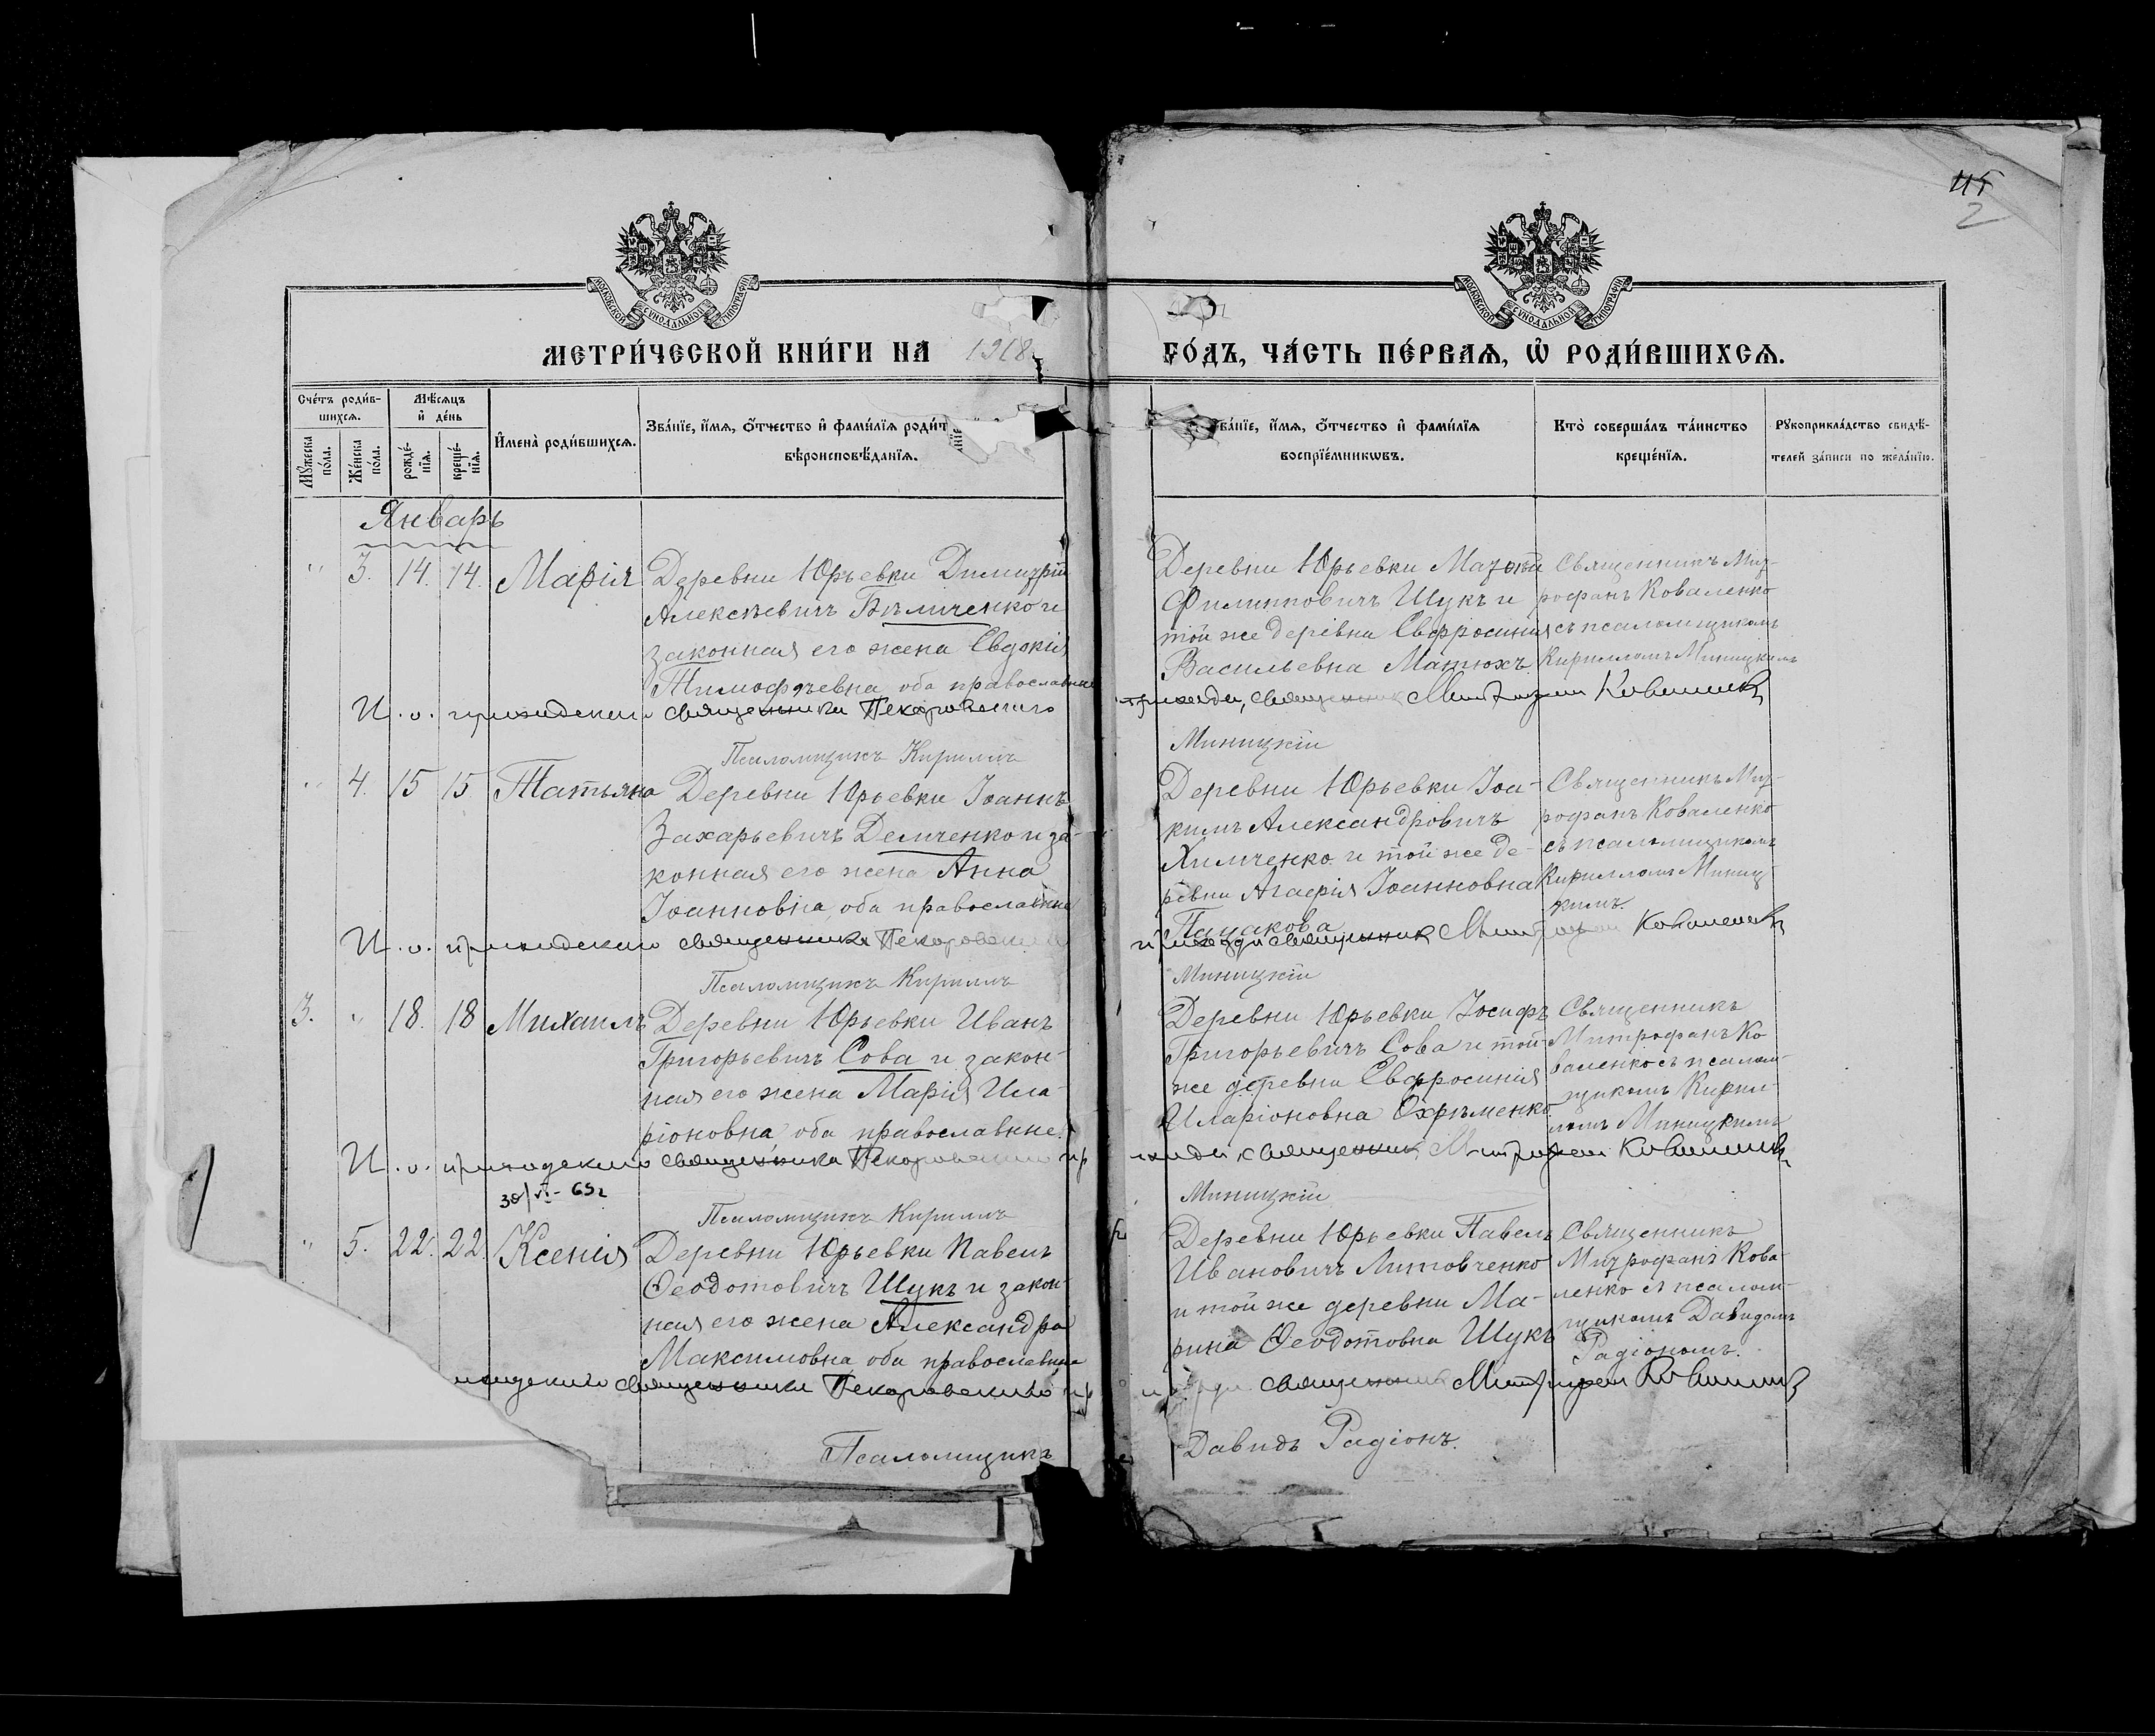 115
2
МОСКОВСКОЙ СѴНОДАЛЬНОЙ ТИПОГРАФІИ
МОСКОВСКОЙ СѴНОДАЛЬНОЙ ТИПОГРАФІИ
МЕТРИ́ЧЕСКОЙ КНИ́ГИ НА 1918
ГО́ДЪ, ЧА́СТЬ ПЕ́РВАѦ, Ѡ҆ РОДИ́ВШИХСѦ.
Сче́тъ роди́в-
шихсѧ.
Мꙋ́жеска по́ла.
Же́нска по́ла.
Мѣ́сѧцъ
и҆ де́нь
рожде́-
нїѧ.
креще́-
нїѧ.
И҆мена̀ роди́вшихсѧ.
Зва́нїе, и҆́мѧ, ѻ҆́тчество и҆ фамѝлїѧ роди́т
вѣроисповѣ́данїѧ.
ва́нїе, и҆́мѧ, ѻ҆́тчество и҆ фами́лїѧ
воспрїе́мникѡвъ.
Кто̀ соверша́лъ та́инство
креще́нїѧ.
Рꙋкоприкла́дство свидѣ́-
телей за́писи по жела́нїю.
Январь
" 3. 14. 14. Марія
Деревни Юрьевки Димитрій
Алексѣевичъ Бѣличенко и
законная его жена Евдокія
Тимофѣевна, оба православные
Деревни Юрьевки
Филипповичъ Щукъ и
той же деревни Евфросинія
Васильевна Матюхъ
Священникъ Мит-
рофанъ Коваленко
съ псаломщикомъ
Кирилломъ Миницкимъ
И. о. приходскаго священника Пекаровскаго
прихода, священник Митрофан Коваленко
Псаломщикъ Кириллъ
Миницкій
" 4. 15 15 Татьяна
Деревни Юрьевки Іоаннъ
Захарьевичъ Демченко и за-
конная его жена Анна
Іоанновна, оба православные
Деревни Юрьевки Іоа-
кимъ Александровичъ
Химченко и той же де-
ревни Агафія Іоанновна
Священникъ Мит-
рофанъ Коваленко
съ псаломщикомъ
Кирилломъ Миниц-
кимъ.
И. о. приходскаго священника Пекаровскаго
прихода священник Митрофан Коваленко
Псаломщикъ Кириллъ
Миницкій
3. " 18. 18 Михаилъ
Деревни Юрьевки Иванъ
Григорьевичъ Сова и закон-
ная его жена Марія Ила-
ріоновна, оба православные.
Деревни Юрьевки Іосифъ
Григорьевичъ Сова и той-
же деревни Евфросинія
Иларіоновна Охрѣменко
Священникъ
Митрофанъ Ко
валенко съ псалом-
щикомъ Кирил
ломъ Миницкимъ
И. о. приходскаго священника Пекаровскаго пр
ихода, священник Митрофан Коваленко
30/VI - 65г
Псаломщикъ Кириллъ
Миницкій
" 5. 22. 22. Ксенія
Деревни Юрьевки Павелъ
Ѳеодотовичъ Щукъ и закон-
ная его жена Александра
Максимовна оба православные
Деревни Юрьевки Павелъ
Ивановичъ Литовченко
и той же деревни Ма-
рина Ѳеодотовна Щукъ
Священникъ
Митрофанъ Кова-
ленко съ псалом-
щикомъ Давидомъ
Радіономъ.
иходскаго священника Пекаровскаго пр
ихода священник Митрофан Коваленко
Псаломщикъ
Давидъ Радіонъ.